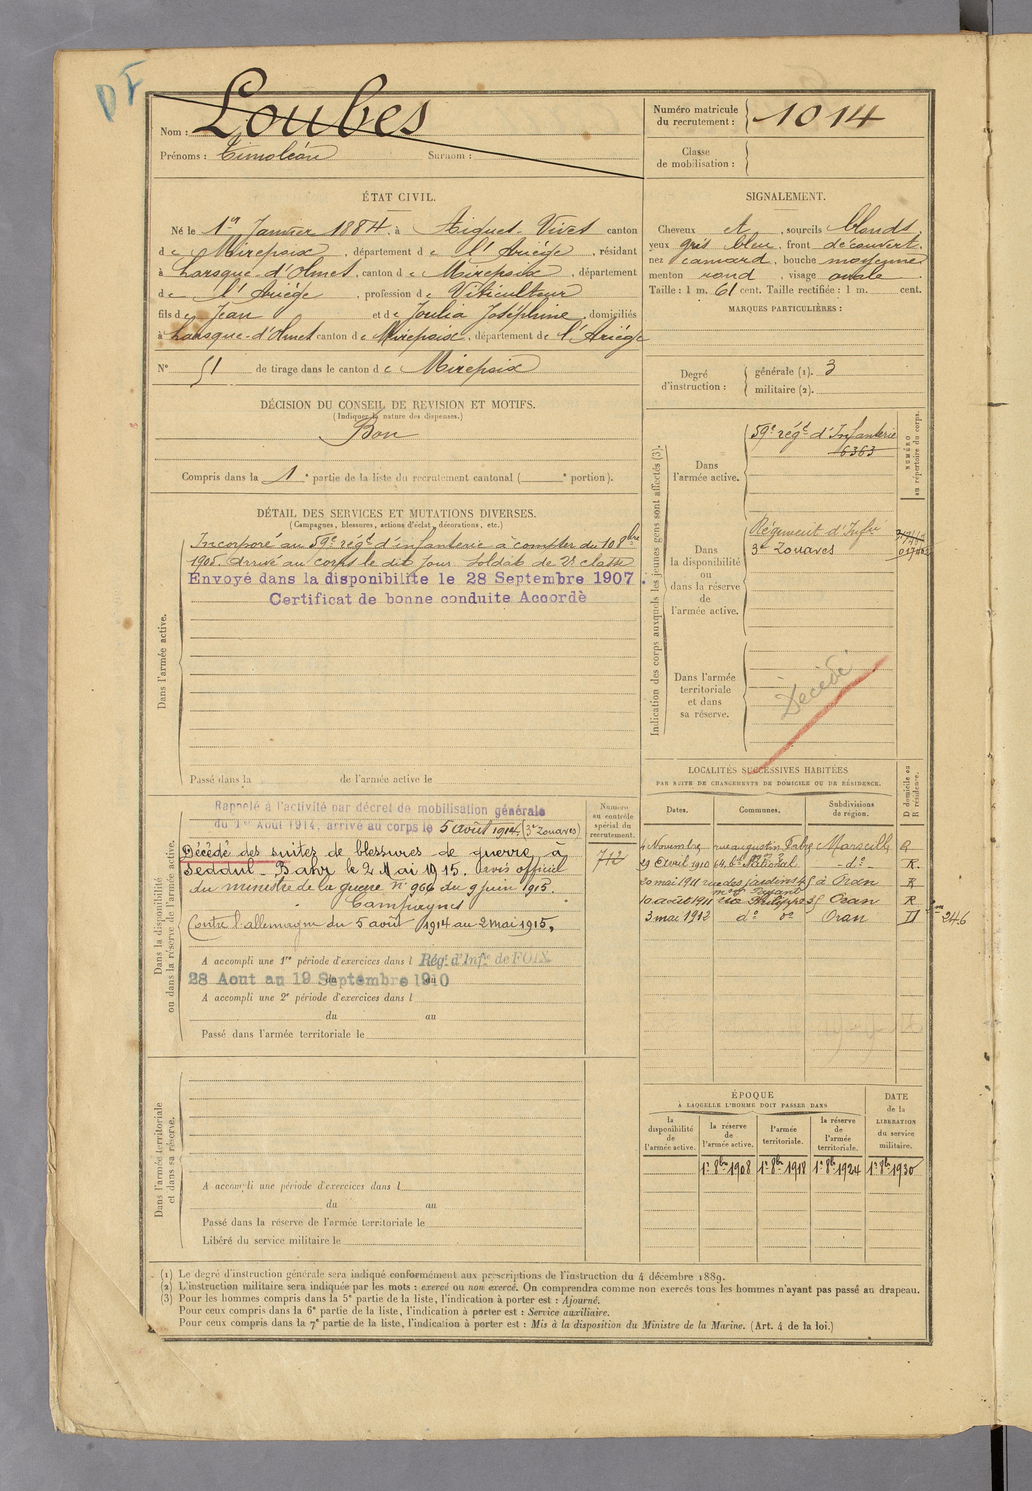 DF
Nom : Loubes
Prénoms : Timoléon Surnom :
Numéro matricule
du recrutement : 1014
Classe
de mobilisation :
ÉTAT CIVIL.
Né le 1er Janvier 1884, à Aigues-Vives canton
de Mirepoix, département de l'Ariège, résidant
à Laroque-d'Olmes, canton de Mirepoix, département
de l'Ariège, profession de Viticulteur
fils de Jean et de Joulia Joséphine, domiciliés
à Laroque-d'Olmes canton de Mirepoix, département de l'Ariège
N° 51 de tirage dans le canton de Mirepoix
SIGNALEMENT.
Cheveux et , sourcils blonds,
yeux gris bleu, front découvert,
nez camard, bouche moyenne
menton rond, visage ovale
Taille : 1 m. 61 cent. Taille rectifiée : 1 m. cent.
MARQUES PARTICULIÈRES :
Degré
d'instruction :
générale (1). 3
militaire (2).
DÉCISION DU CONSEIL DE REVISION ET MOTIFS.
(Indiquer la nature des dispenses.)
Bon
Compris dans la 1e partie de la liste du recrutement cantonal ( e portion).
DÉTAIL DES SERVICES ET MUTATIONS DIVERSES.
(Campagnes, blessures, actions d'éclat, décorations, etc.)
Dans l'armée active.
Incorporé au 59e régt d'infanterie à compter du 10 8bre
1905. Arrivé au corps le dit jour. Soldat de 2e classe
Envoyé dans la disponibilité le 28 Septembre 1907.
Certificat de bonne conduite Accordé
Passé dans la de l'armée active le
Indication des corps auxquels les jeunes gens sont affectés (3).
NUMÉRO
au répertoire du corps.
Dans
l'armée active.
59e régt d'Infanterie
6363
Dans
la disponibilité
ou
dans la réserve
de
l'armée active.
Régiment d'Infie
3e Zouaves
Dans l'armée
territoriale
et dans
sa réserve.
Décédé
LOCALITÉS SUCCESSIVES HABITÉES
PAR SUITE DE CHANGEMENTS DE DOMICILE OU DE RÉSIDENCE.
D domicile ou
R résidence.
Dates. Communes. Subdivisions
de région.
4 Novembre rue augustin Fabre Marseille R
29 Avril 1910 64 Bd National - do - R
20 mai 1911 rue des jardins 45 à Oran R
10 août 1911 Oran R
3 mai 1912 do do Oran D 246
Dans la disponibilité
ou dans la réserve de l'armée active.
Numéro
au contrôle
spécial du
recrutement.
712
Rappelé à l'activité par décret de mobilisation générale
du 1er Août 1914, arrivé au corps le 5 août 1914 (3e Zouaves)
Décédé des suites de blessures de guerre à
Seddul-Bahr le 2 Mai 1915. Avis officiel
du ministre de la guerre n° 966 du 9 juin 1915.
Campagnes
Contre l'allemagne du 5 août 1914 au 2 mai 1915.
A accompli une 1re période d'exercices dans l Rég. d'Infie de FOIX
28 Aout au 19 Septembre 1910
A accompli une 2e période d'exercices dans l
du au
Passé dans l'armée territoriale le
Dans l'armée territoriale
et dans sa réserve.
A accompli une période d'exercices dans l
du au
Passé dans la réserve de l'armée territoriale le
Libéré du service militaire le
ÉPOQUE
A LAQUELLE L'HOMME DOIT PASSER DANS
la
disponibilité
de
l'armée active.
la réserve
de
l'armée active.
l'armée
territoriale.
la réserve
de
l'armée
territoriale.
DATE
de la
LIBÉRATION
du service
militaire.
1r 8bre 1908 1r 8bre 1918 1r 8bre 1924 1r 8bre 1930
(1) Le degré d'instruction générale sera indiqué conformément aux prescriptions de l'instruction du 4 décembre 1889.
(2) L'instruction militaire sera indiquée par les mots : exercé ou non exercé. On comprendra comme non exercés tous les hommes n'ayant pas passé au drapeau.
(3) Pour les hommes compris dans la 5e partie de la liste, l'indication à porter est : Ajourné.
Pour ceux compris dans la 6e partie de la liste, l'indication à porter est : Service auxiliaire.
Pour ceux compris dans la 7e partie de la liste, l'indication à porter est : Mis à la disposition du Ministre de la Marine. (Art. 4 de la loi.)